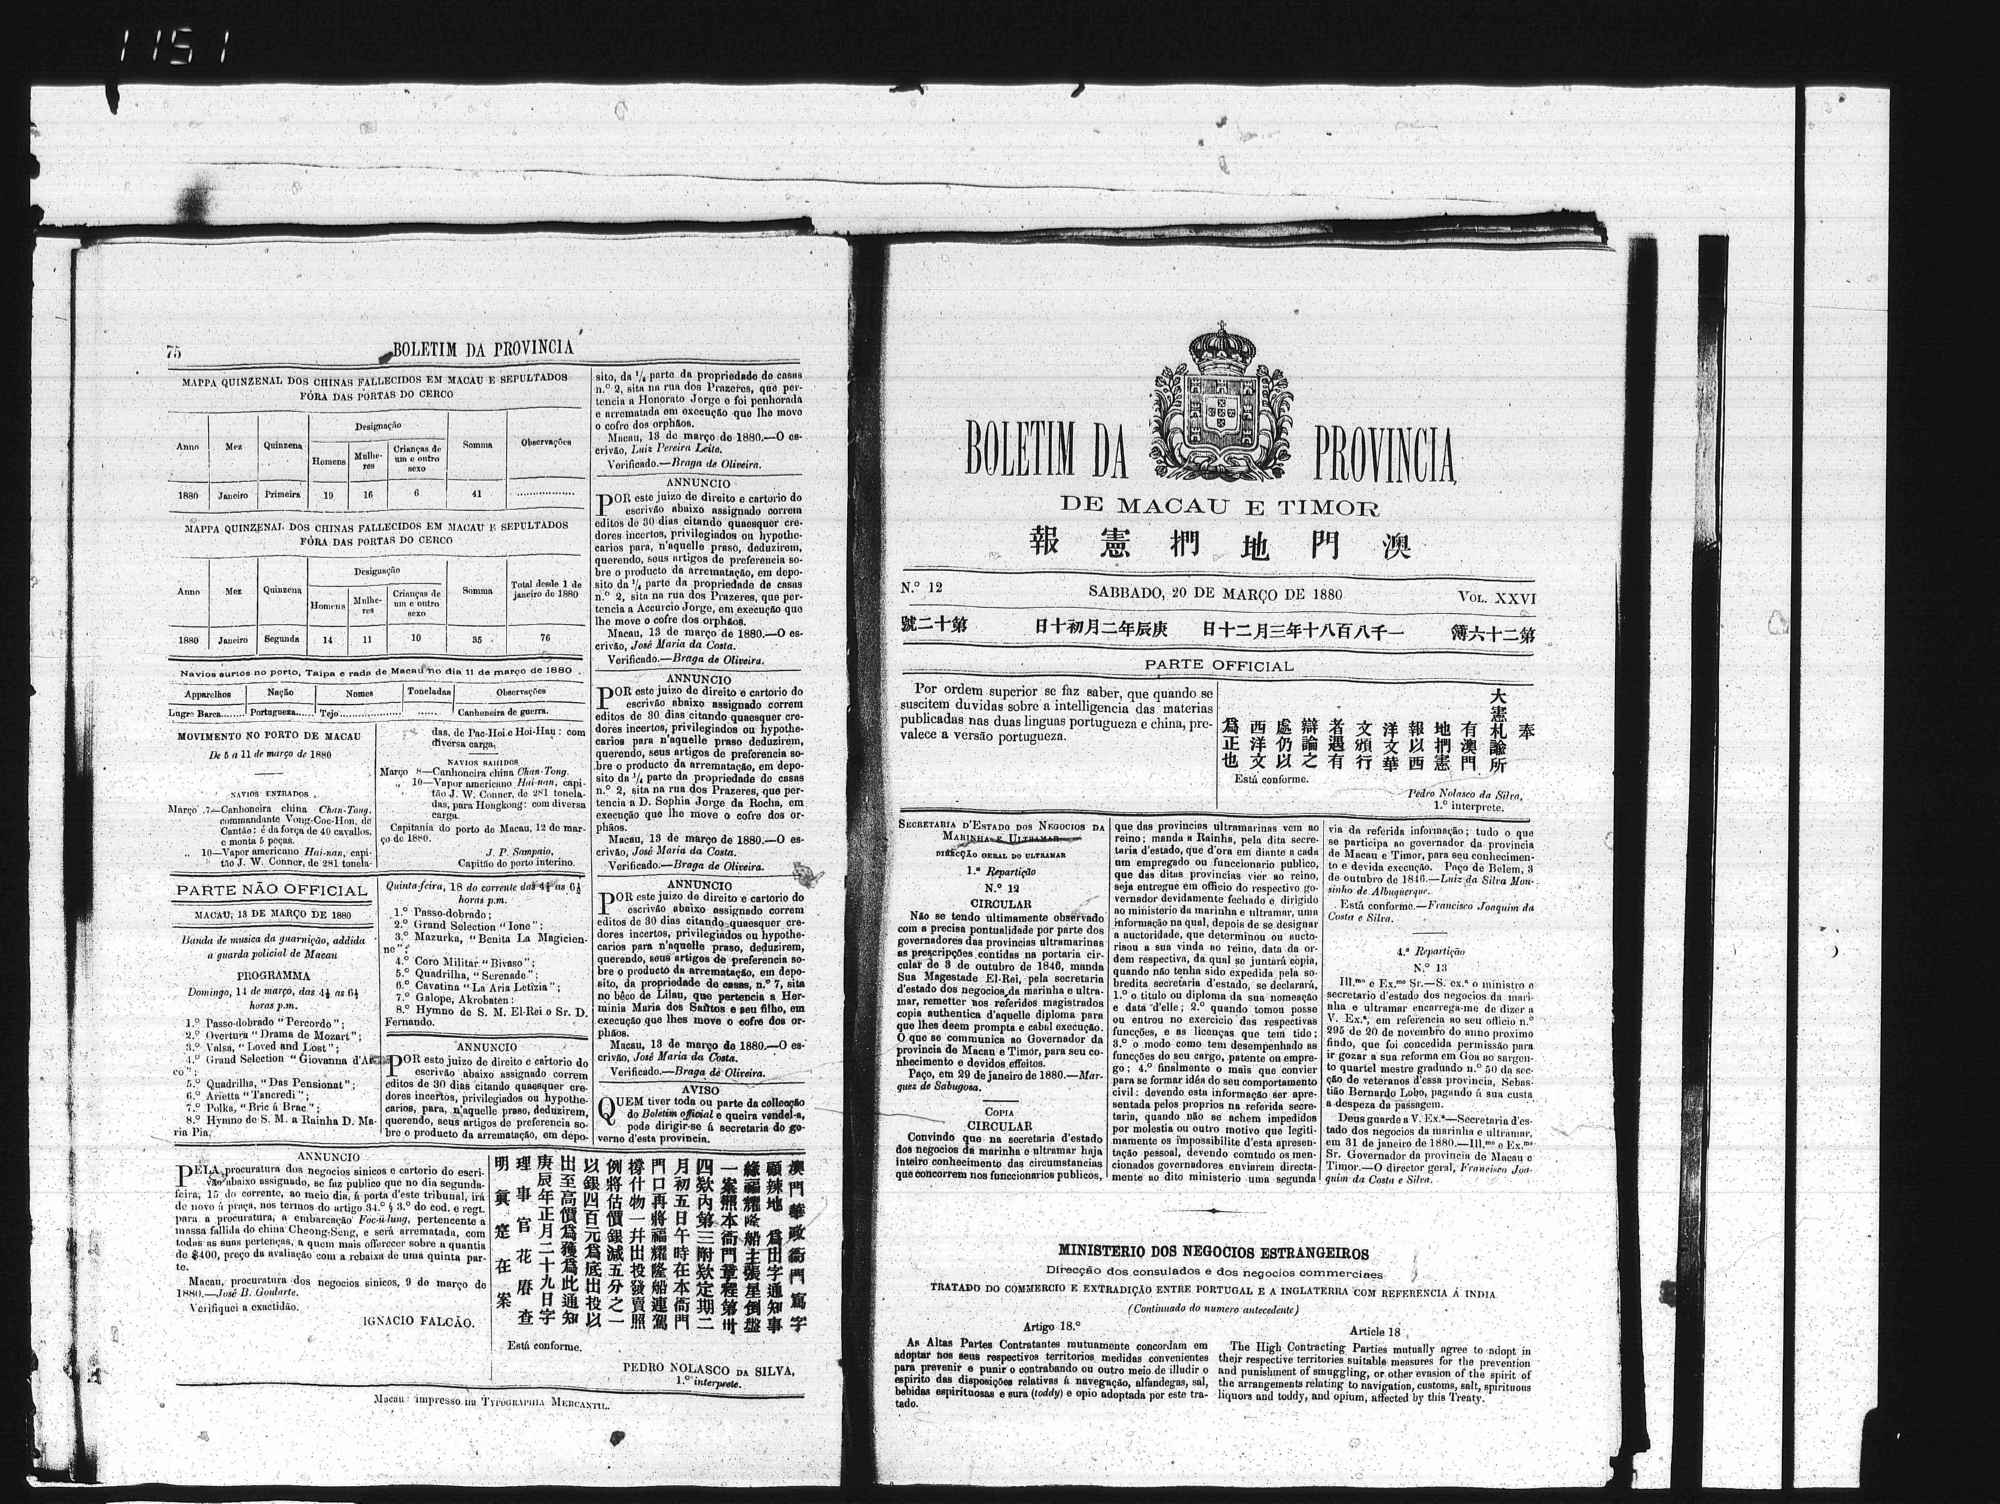 1151
75
BOLETIM DA PROVINCIA
MAPPA QUINZENAL DOS CHINAS FALLECIDOS EM MACAU E SEPULTADOS
FÓRA DAS PORTAS DO CERCO
Anno Mez Quinzena Designação Somma Observações
Homens Mulheres Crianças de um e outro sexo
1880 Janeiro Primeira 19 16 6 41 ..................
MAPPA QUINZENAL DOS CHINAS FALLECIDOS EM MACAU E SEPULTADOS
FÓRA DAS PORTAS DO CERCO
Anno Mez Quinzena Designação Somma Total desde 1 de janeiro de 1880
Homens Mulheres Crianças de um e outro sexo
1880 Janeiro Segunda 14 11 10 35 76
Navios surtos no porto, Taipa e rada de Macau no dia 11 de março de 1880
Apparelhos Nação Nomes Toneladas Observações
Lugre Barca....... Portugueza...... Tejo.................... ...... Canhoneira de guerra.
MOVIMENTO NO PORTO DE MACAU
De 5 a 11 de março de 1880
NAVIOS ENTRADOS
Março 7—Canhoneira china Chan-Tong,
commandante Vong-Coc-Hon, de
Cantão: é da força de 40 cavallos,
e monta 5 peças.
„ 10—Vapor americano Hai-nan, capi-
tão J. W. Conner, de 281 tonela-
das, de Pac-Hoi e Hoi-Hau: com
diversa carga.
NAVIOS SAHIDOS
Março 8—Canhoneira china Chan-Tong.
„ 10—Vapor americano Hai-nan, capi-
tão J. W. Conner, de 281 tonela-
das, para Hongkong: com diversa
carga.
Capitania do porto de Macau, 12 de mar-
ço de 1880.
J. P. Sampaio,
Capitão do porto interino.
PARTE NÃO OFFICIAL
MACAU, 13 DE MARÇO DE 1880
Banda de musica da guarnição, addida
a guarda policial de Macau
PROGRAMMA
Domingo, 14 de março, das 4½ as 6½
horas p.m.
1.º Passo-dobrado "Percordo";
2.º Overtura "Drama de Mozart";
3.º Valsa, "Loved and Lost";
4.º Grand Selection "Giovanna d'Ar
co";
5.º Quadrilha, "Das Pensionat";
6.º Arietta "Tancredi";
7.º Polka, "Bric á Brac";
8.º Hymno de S. M. a Rainha D. Ma-
ria Pia.
Quinta-feira, 18 do corrente das 4½ as 6½
horas p.m.
1.º Passo-dobrado;
2.º Grand Selection "Ione";
3.º Mazurka, "Benita La Magicien-
ne";
4.º Coro Militar "Bivaso";
5.º Quadrilha, "Serenade";
6.º Cavatina "La Aria Letizia";
7.º Galope, Akrobaten:
8.º Hymno de S. M. El-Rei o Sr. D.
Fernando.
ANNUNCIO
POR esto juizo de direito e cartorio do
escrivão abaixo assignado correm
editos de 30 dias citando quaesquer cre-
dores incertos, privilegiados ou hypothe-
carios, para, n'aquelle praso, deduzirem,
querendo, seus artigos de preferencia so-
bre o producto da arrematação, em depo-
sito, da ¼ parte da propriedade de casas
n.º 2, sita na rua dos Prazeres, que per-
tencia a Honorato Jorge e foi penhorada
e arrematada em execução que lhe move
o cofre dos orphãos.
Macau, 13 de março de 1880.—O es-
crivão, Luiz Pereira Leite.
Verificado.—Braga de Oliveira.
ANNUNCIO
POR este juizo de direito e cartorio do
escrivão abaixo assignado correm
editos de 30 dias citando quaesquer cre-
dores incertos, privilegiados ou hypothe-
carios para, n'aquelle praso, deduzirem,
querendo, seus artigos de preferencia so-
bre o producto da arrematação, em depo-
sito da ¼ parte da propriedade de casas
n.º 2, sita na rua dos Prazeres, que per-
tencia a Accurcio Jorge, em execução que
lhe move o cofre dos orphãos.
Macau, 13 de março de 1880.—O es-
crivão, José Maria da Costa.
Verificado.—Braga de Oliveira.
ANNUNCIO
POR este juizo de direito e cartorio do
escrivão abaixo assignado correm
editos de 30 dias citando quaesquer cre-
dores incertos, privilegiados ou hypothe-
carios para n'aquelle praso deduzirem,
querendo, seus artigos de preferencia so-
bre o producto da arrematação, em depo-
sito da ¼ parte da propriedade de casas
n.º 2, sita na rua dos Prazeres, que per-
tencia a D. Sophia Jorge da Rocha, em
execução que lhe move o cofre dos or-
phãos.
Macau, 13 de março de 1880.—O es-
crivão, José Maria da Costa.
Verificado.—Braga de Oliveira.
ANNUNCIO
POR este juizo de direito e cartorio do
escrivão abaixo assignado correm
editos de 30 dias citando quaesquer cre-
dores incertos, privilegiados ou hypothe-
carios para, n'aquelle praso, deduzirem,
querendo, seus artigos de preferencia so-
bre o producto da arrematação, em depo-
sito, da propriedade de casas, n.º 7, sita
no bêco de Lilau, que pertencia a Her-
minia Maria dos Santos e seu filho, em
execução que lhes move o cofre dos or-
phãos.
Macau, 13 de março de 1880.—O es-
crivão, José Maria da Costa.
Verificado.—Braga de Oliveira.
AVISO
QUEM tiver toda ou parte da collecção
do Boletim official e queira vendel-a,
pode dirigir-se á secretaria do go-
verno d'esta provincia.
ANNUNCIO
PELA procuratura dos negocios sinicos e cartorio do escri-
vão abaixo assignado, se faz publico que no dia segunda-
feira, 15 do corrente, ao meio dia, á porta d'este tribunal, irá
de novo á praça, nos termos do artigo 34.º § 3.º do cod. e regt.
para a procuratura, a embarcação Foc-iu-lung, pertencente a
massa fallida do china Cheong-Seng, e será arrematada, com
todas as suas pertenças, a quem mais offerecer sobre a quantia
de $400, preço da avaliação com a rebaixa de uma quinta par-
te.
Macau, procuratura dos negocios sinicos, 9 de março de
1880.—José B. Goularte.
Verifiquei a exactidão.
IGNACIO FALCÃO.
澳門華政衙門寫字
顧辣地 為出字通知事
緣福耀隆船主張星倒盤
一案照本衙門章程第卅
四欵內第三附欵定期二
月初五日午時在本衙門
門口再將福耀隆船連駕
撐什物一并出投發賣照
例將估價銀減五分之一
以銀四百元為底出投以
出至高價為獲為此通知
庚辰年正月二十九日字
理事官花曆查
明眞寔在案
Está conforme.
PEDRO NOLASCO DA SILVA,
1.º interprete.
Macau: impresso na TYPOGRAPHIA MERCANTIL.
BOLETIM DA PROVINCIA
DE MACAU E TIMOR
報憲捫地門澳
N.º 12
SABBADO, 20 DE MARÇO DE 1880
VOL. XXVI
號二十第 日十初月二年辰庚 日十二月三年十八百八千一 簿六十二第
PARTE OFFICIAL
Por ordem superior se faz saber, que quando se
suscitem duvidas sobre a intelligencia das materias
publicadas nas duas linguas portugueza e china, pre-
valece a versão portugueza.
奉
大憲札諭所
有澳門
地捫憲
報以西
洋文華
文頒行
者遇有
辯論之
處仍以
西洋文
為正也
Está conforme.
Pedro Nolasco da Silva,
1.º interprete.
SECRETARIA D'ESTADO DOS NEGOCIOS DA
MARINHA E ULTRAMAR
DIRECÇÃO GERAL DO ULTRAMAR
1.ª Repartição
N.º 12
CIRCULAR
Não se tendo ultimamente observado
com a precisa pontualidade por parte dos
governadores das provincias ultramarinas
as prescripções contidas na portaria cir-
cular de 3 de outubro de 1846, manda
Sua Magestade El-Rei, pela secretaria
d'estado dos negocios da marinha e ultra-
mar, remetter aos referidos magistrados
copia authentica d'aquelle diploma para
que lhes deem prompta e cabal execução.
O que se communica ao Governador da
provincia de Macau e Timor, para seu co-
nhecimento e devidos effeitos.
Paço, em 29 de janeiro de 1880.—Mar-
quez de Sabugosa.
COPIA
CIRCULAR
Convindo que na secretaria d'estado
dos negocios da marinha e ultramar haja
inteiro conhecimento das circumstancias
que concorrem nos funccionarios publicos,
que das provincias ultramarinas vem ao
reino; manda a Rainha, pela dita secre-
taria d'estado, que d'ora em diante a cada
um empregado ou funccionario publico,
que das ditas provincias vier ao reino,
seja entregue em officio do respectivo go-
vernador devidamente fechado e dirigido
ao ministerio da marinha e ultramar, uma
informação na qual, depois de se designar
a auctoridade, que determinou ou aucto-
risou a sua vinda ao reino, data da or-
dem respectiva, da qual se juntará copia,
quando não tenha sido expedida pela so-
bredita secretaria d'estado, se declarará,
1.º o titulo ou diploma da sua nomeação
e data d'elle; 2.º quando tomou posse
ou entrou no exercicio das respectivas
funcções, e as licenças que tem tido;
3.º o modo como tem desempenhado as
funcções do seu cargo, patente ou empre-
go; 4.º finalmente o mais que convier
para se formar idéa do seu comportamento
civil: devendo esta informação ser apre-
sentada pelos proprios na referida secre-
taria, quando não se achem impedidos
por molestia ou outro motivo que legiti-
mamente os impossibilite d'esta apresen-
tação pessoal, devendo comtudo os men-
cionados governadores enviarem directa-
mente ao dito ministerio uma segunda
via da referida informação; tudo o que
se participa ao governador da provincia
de Macau e Timor, para seu conhecimen-
to e devida execução. Paço de Belem, 3
de outubro de 1846.—Luiz da Silva Mou-
sinho de Albuquerque.
Está conforme.—Francisco Joaquim da
Costa e Silva.
4.ª Repartição
N.º 13
Ill.mo e Ex.mo Sr.—S. ex.ª o ministro e
secretario d'estado dos negocios da mari-
nha e ultramar encarrega-me de dizer a
V. Ex.ª, em referencia ao seu officio n.º
295 de 20 de novembro do anno proximo
findo, que foi concedida permissão para
ir gozar a sua reforma em Goa ao sargen-
to quartel mestre graduado n.º 50 da sec-
ção de veteranos d'essa provincia, Sebas-
tião Bernardo Lobo, pagando á sua custa
a despeza da passagem.
Deus guarde a V. Ex.ª—Secretaria d'es-
tado dos negocios da marinha e ultramar,
em 31 de janeiro de 1880.—Ill.mo e Ex.mo
Sr. Governador da provincia de Macau e
Timor.—O director geral, Francisco Joa-
quim da Costa e Silva.
MINISTERIO DOS NEGOCIOS ESTRANGEIROS
Direcção dos consulados e dos negocios commerciaes
TRATADO DO COMMERCIO E EXTRADIÇÃO ENTRE PORTUGAL E A INGLATERRA COM REFERENCIA Á INDIA
(Continuado do numero antecedente)
Artigo 18.º
As Altas Partes Contratantes mutuamente concordam em
adoptar nos seus respectivos territorios medidas convenientes
para prevenir e punir o contrabando ou outro meio de illudir o
espirito das disposições relativas á navegação, alfandegas, sal,
bebidas espirituosas e sura (toddy) e opio adoptada por este tra-
tado.
Article 18
The High Contracting Parties mutually agree to adopt in
their respective territories suitable measures for the prevention
and punishment of smuggling, or other evasion of the spirit of
the arrangements relating to navigation, customs, salt, spirituous
liquors and toddy, and opium, affected by this Treaty.